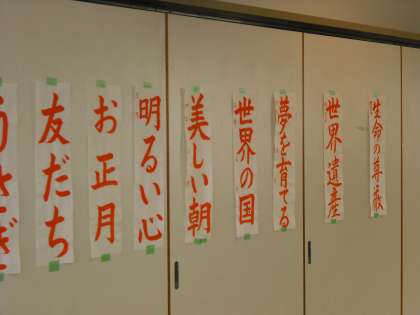 うさぎ
友だち
お正月
明るい心
美しい朝
世界の国
夢を育てる
世界遺産
生命の尊厳